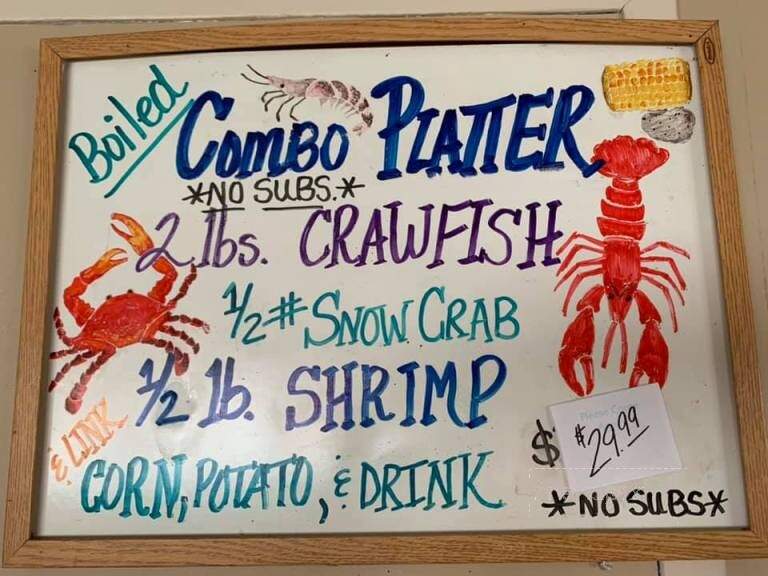 Boiled
COMBO PLATTER
*NO SUBS.*
2 lbs. CRAWFISH
1/2 # SNOW CRAB
1/2 lb. SHRIMP
& LINK
CORN, POTATO, & DRINK
$ $29.99
*NO SUBS*